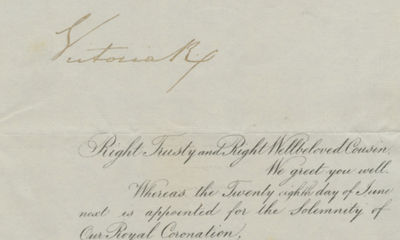 Victoria R
Right Trusty and Right Wellbeloved Cousin,
We greet you well.
Whereas the Twenty eighth day of June
next is appointed for the Solemnity of
Our Royal Coronation,